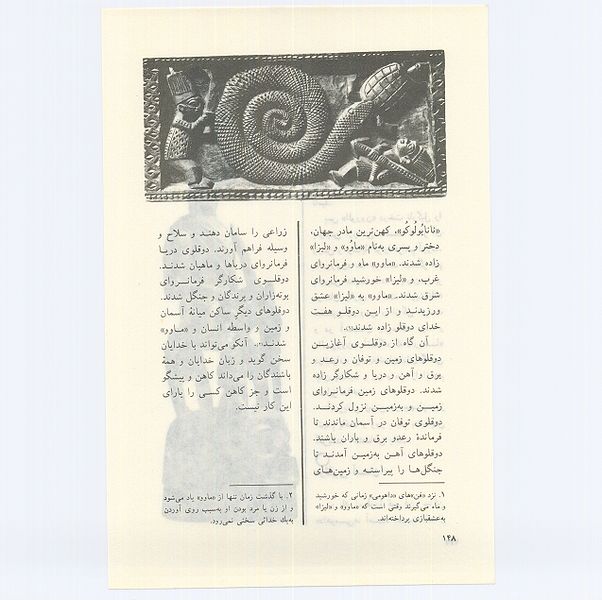 «نانابولوکو»، کهن‌ترین مادر جهان،
دختر و پسری به‌نام «ماوو» و «لیزا»
زاده شدند. «ماوو» ماه و فرمانروای
غرب، و «لیزا» خورشید فرمانروای
شرق شدند. «ماوو» به «لیزا» عشق
ورزیدند و از این دوقلو هفت
خدای دوقلو زاده شدند(۱).
آن گاه از دوقلوی آغازین
دوقلوهای زمین و توفان و رعد و
برق و آهن و دریا و شکارگر زاده
شدند. دوقلوهای زمین فرمانروای
زمین و به‌زمین نزول کردند.
دوقلوی توفان در آسمان ماندند تا
فرماندهٔ رعدو برق و باران باشند.
دوقلوهای آهن به‌زمین آمدند تا
جنگل‌ها را پیراسته و زمین‌های
۱. نزد «فن»های «داهومی» زمانی که خورشید
و ماه می‌گیرند وقتی است که «ماوو» و «لیزا»
به‌عشقبازی پرداخته‌اند.
زراعی را سامان دهند و سلاح و
وسیله فراهم آورند. دوقلوی دریا
فرمانروای دریاها و ماهیان شدند.
دوقلوی شکارگر فرمانروای
بوته‌زاران و پرندگان و جنگل شدند.
دوقلوهای دیگر ساکن میانهٔ آسمان
و زمین و واسطه انسان و «ماوو»
شدند(۲). آنکو می‌تواند با خدایان
سخن گوید و زبان خدایان و همهٔ
باشندگان را می‌داند کاهن و پیشگو
است و جز کاهن کسی را یارای
این کار نیست.
۲. با گذشت زمان تنها از «ماوو» یاد می‌شود
و از زن یا مرد بودن او به‌سبب روی آوردن
به‌یك خدائی سخنی نمی‌رود.
۱۴۸